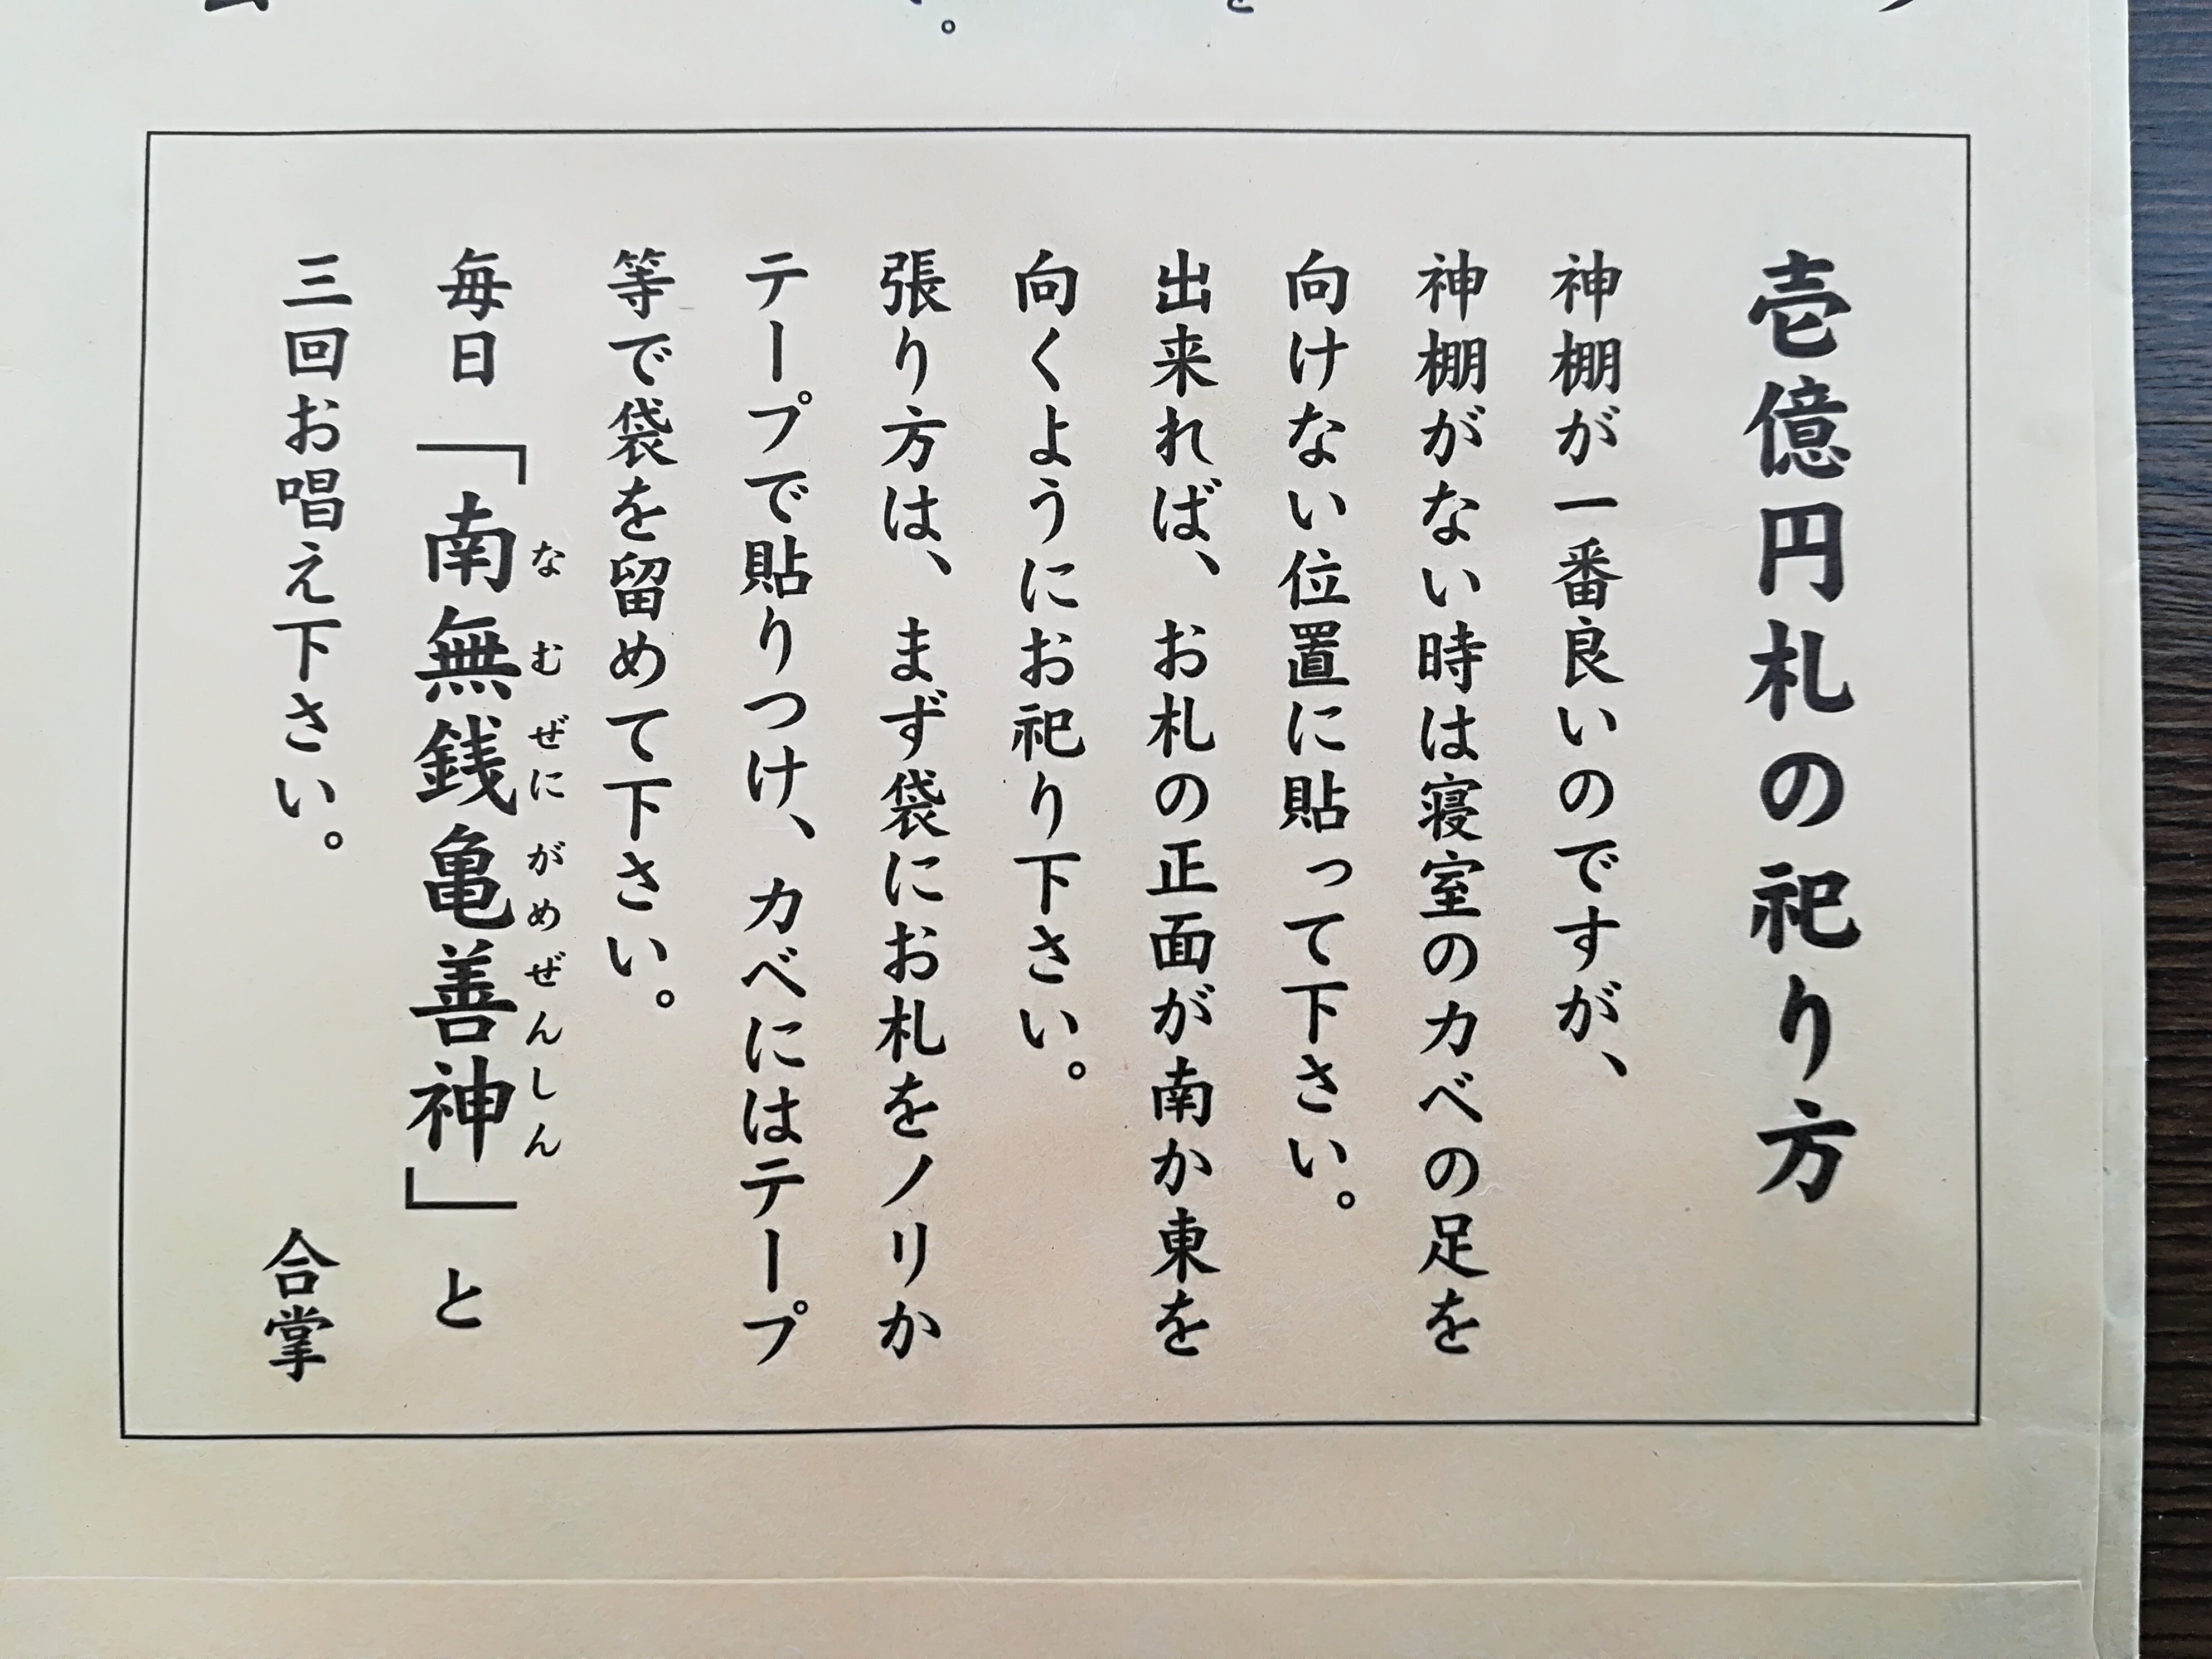 壱億円札の祀り方
神棚が一番良いのですが、
神棚がない時は寝室のカベの足を
向けない位置に貼って下さい。
出来れば、お札の正面が南か東を
向くようにお祀り下さい。
張り方は、まず袋にお札をノリか
テープで貼りつけ、カベにはテープ
等で袋を留めて下さい。
毎日「南無銭亀善神」と
なむぜにがめぜんしん
三回お唱え下さい。
合掌